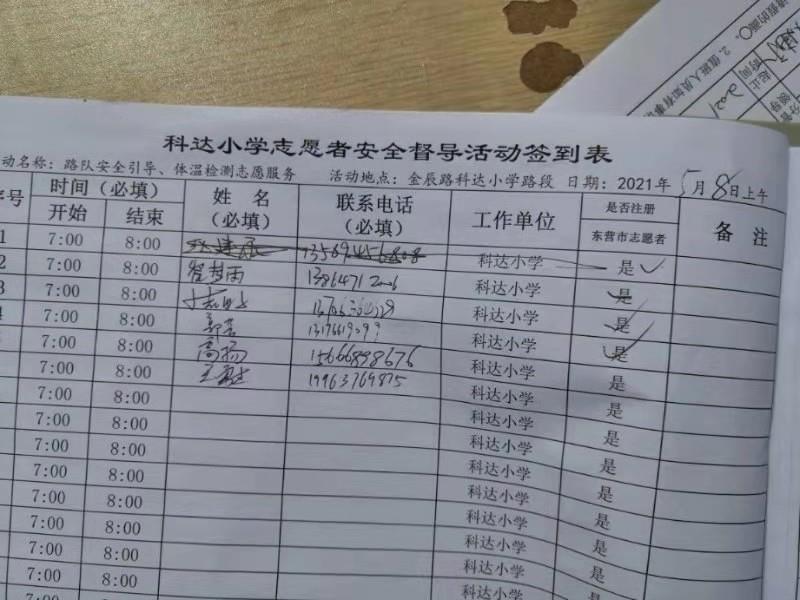 科达小学志愿者安全督导活动签到表
动名称：路队安全引导、体温检测志愿服务 活动地点：金辰路科达小学路段 日期：2021年5月8日上午
序号 时间（必填） 姓名（必填） 联系电话（必填） 工作单位 是否注册东营市志愿者 备注
开始 结束
1 7:00 8:00 科达小学 是
2 7:00 8:00 科达小学 是
3 7:00 8:00 科达小学 是
4 7:00 8:00 郭芸 科达小学 是
7:00 8:00 高扬 15666898676 科达小学 是
7:00 8:00 19963769875 科达小学 是
7:00 8:00 科达小学 是
7:00 8:00 科达小学 是
7:00 8:00 科达小学 是
7:00 8:00 科达小学 是
7:00 8:00 科达小学 是
7:00 8:00 科达小学 是
7:00 8:00 科达小学 是
7:00 8:00 科达小学